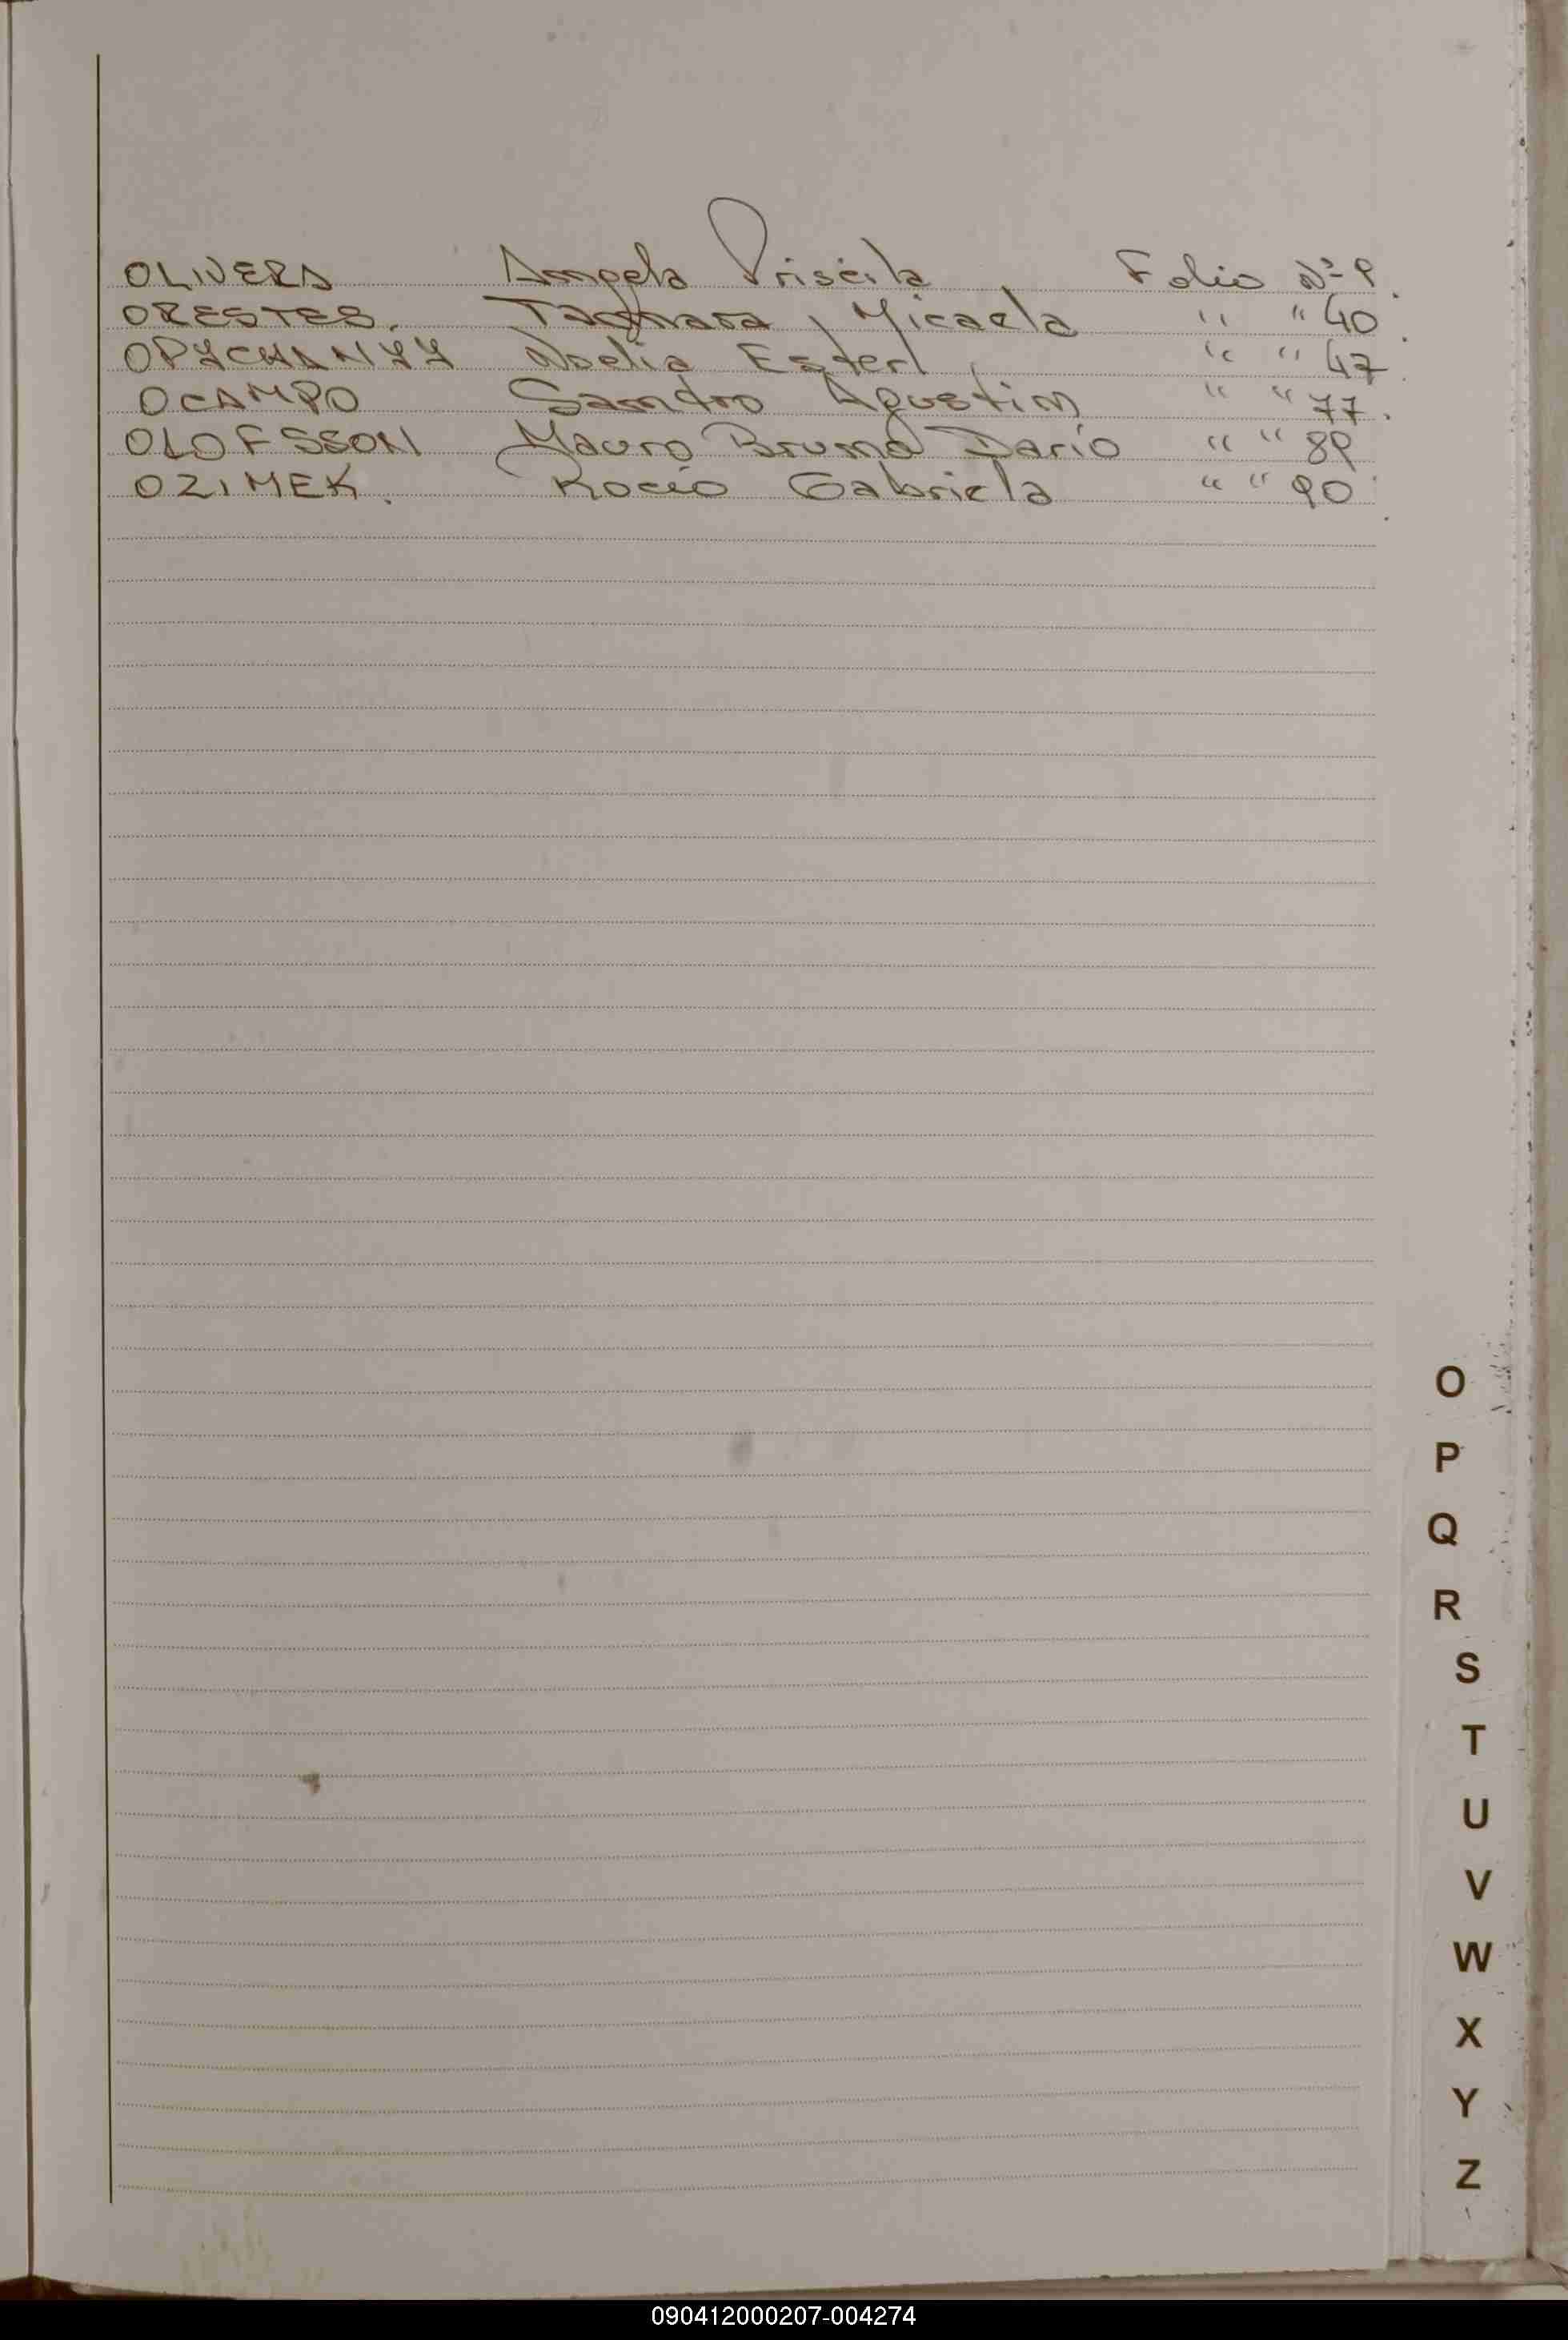 OLIVERA Angela Priscila Folio Nº 9.
ORESTES. Micaela " " 40
OPYCHANYY Noelia Ester " " 47.
OCAMPO Sandro Agustin " " 77.
OLOFSSON Mauro Bruno Dario " " 89
OZIMEK. Rocio Gabriela " " 90.
O
P
Q
R
S
T
U
V
W
X
Y
Z
090412000207-004274